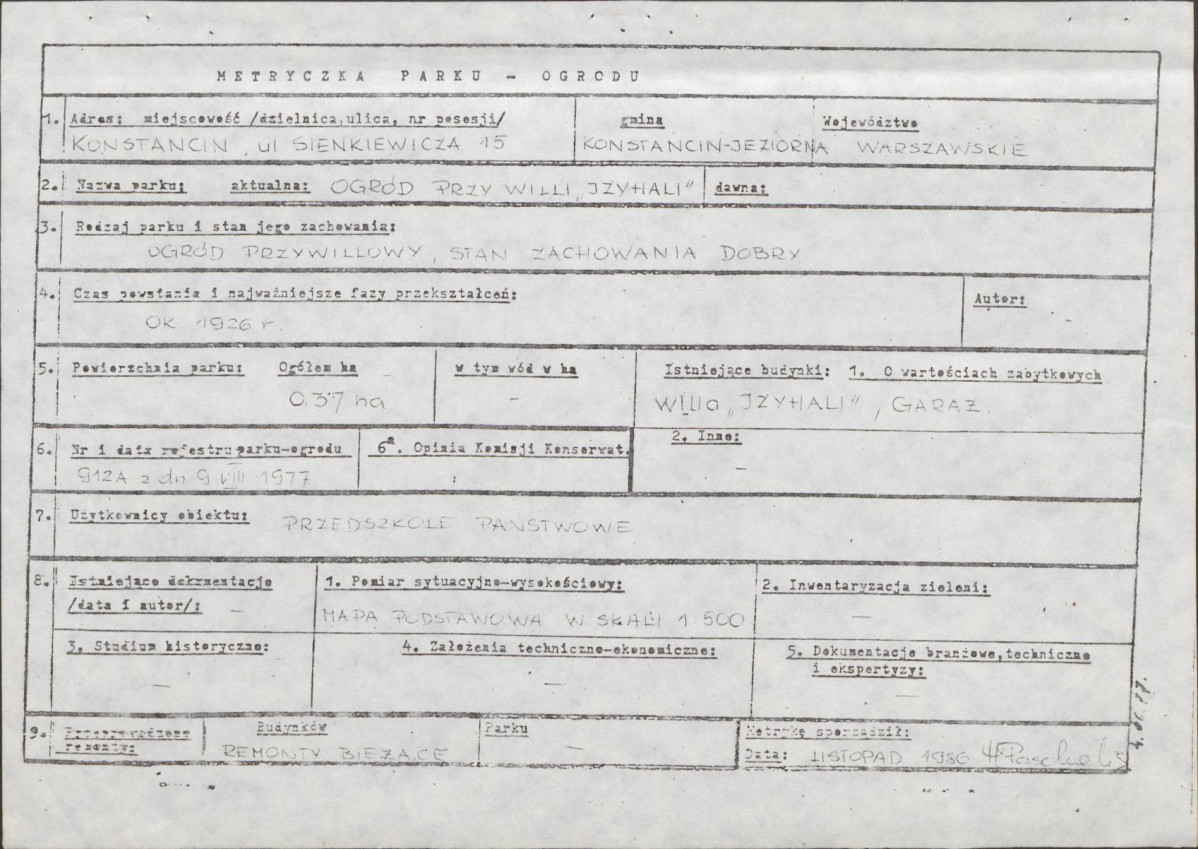 METRYCZKA PARKU - OGRODU
1. Adres: miejscowość /dzielnica, ulica, nr posesji/ gmina Województwo
KONSTANCIN, ul SIENKIEWICZA 15 KONSTANCIN-JEZIORNA WARSZAWSKIE
2. Nazwa parku: aktualna: OGRÓD PRZY WILLI „JZYHALI" dawna:
3. Rodzaj parku i stan jego zachowania:
OGRÓD PRZYWILLOWY, STAN ZACHOWANIA DOBRY
4. Czas powstania i najważniejsze fazy przekształceń: Autor:
OK. 1926 r.
5. Powierzchnia parku: Ogółem ha w tym wód w ha Istniejące budynki: 1. O wartościach zabytkowych
0.37 ha - Willa „JZYHALI", GARAŻ.
6. Nr i data rejestru parku-ogrodu 6a. Opinia Komisji Konserwat. 2. Inne:
912A z dn 9 VIII 1977 -
7. Użytkownicy obiektu: PRZEDSZKOLE PAŃSTWOWE
8. Istniejące dokumentacje 1. Pomiar sytuacyjno-wysokościowy: 2. Inwentaryzacja zieleni:
/data i autor/: - MAPA PODSTAWOWA W SKALI 1:500 -
3. Studium historyczne: 4. Założenia techniczno-ekonomiczne: 5. Dokumentacje branżowe, techniczne
i ekspertyzy:
- - -
9. Przeprowadzone Budynków Parku Metrykę sporządził:
remonty: REMONTY BIEŻĄCE - Data: LISTOPAD 1986